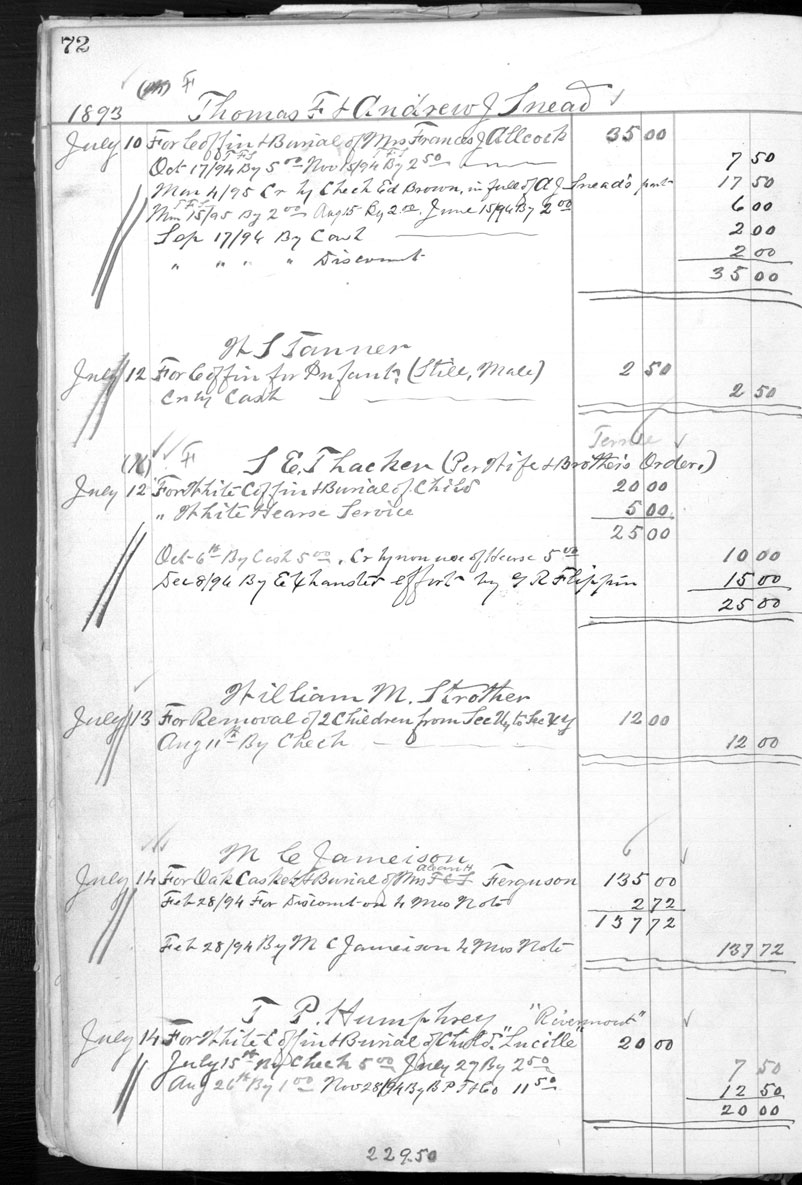 72
(M) F
1893 Thomas F & Andrew J Snead
July 10 For Coffin & Burial of Mrs Frances J Allcock 35 00
Oct 17/94 By 5 00 Nov 15/94 By 2 50 7 50
Mar 4/95 Cr by Check Ed Brown, in full of A J Snead's part 17 50
Mar 15/95 By 2 00 Aug 15 By 2 00, June 15/94 By 2 00 6 00
Sep 17/94 By Cash 2 00
" " " " Discount 2 00
35 00
H S Tanner
July 12 For Coffin for Infant. (Still, Male) 2 50
Cr by Cash 2 50
F S E. Thacker (Per Wife & Brother's Order.)
July 12 For White Coffin & Burial of Child 20 00
" White Hearse Service 5 00
25 00
Oct 6th By Cash 5 00. Cr by non use of Hearse 5 00 10 00
Dec 8/94 By Exhausted effort by G R Flippin 15 00
25 00
William M. Strother
July 13 For Removal of 2 Children from Sec to Sec 12 00
Aug 11th By Check 12 00
M C Jameison
July 14 For Oak Casket & Burial of Mrs Ferguson 135 00
Feb 28/94 For Discount on 4 Mos Note 2 72
137 72
Feb 28/94 By M C Jameison 4 Mos Note 137 72
T P. Humphrey "Rivermont"
July 14 For White Coffin & Burial of Child. "Lucille" 20 00
July 15th By Check 5 00 July 27 By 2 50 7 50
Aug 26th By 1 00 Nov 28/94 By B P & Co 11 50 12 50
20 00
229.50